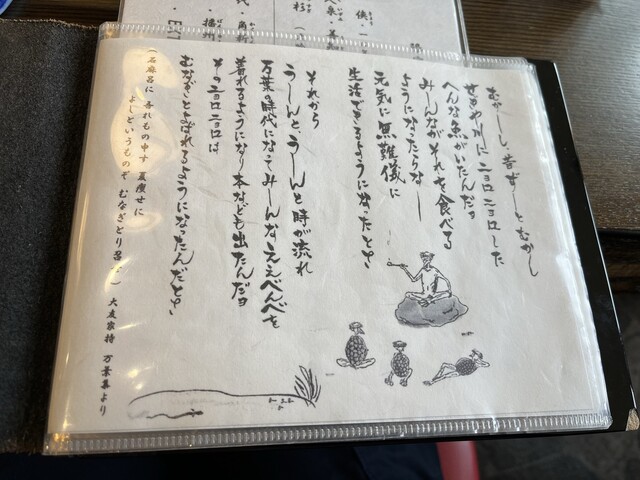 むかーーし、昔ずーーとむかし
せせやカハにニョロニョロした
へんな魚がいたんだョ
みーんながそれを食べてる
ようになったらなーー
元気に無難儀に
生活できるようになったとさ
それから
うーんと、うーんと時が流れ
万葉の時代になってみーんなええべんべを
着れるようになり本なども出たんだョ
そのニョロニョロは
むなぎとよばれるようになったんだとさ
石麻呂に 吾れもの申す 夏痩せに
よしというものぞ むなぎとり
大友家持 万葉集より